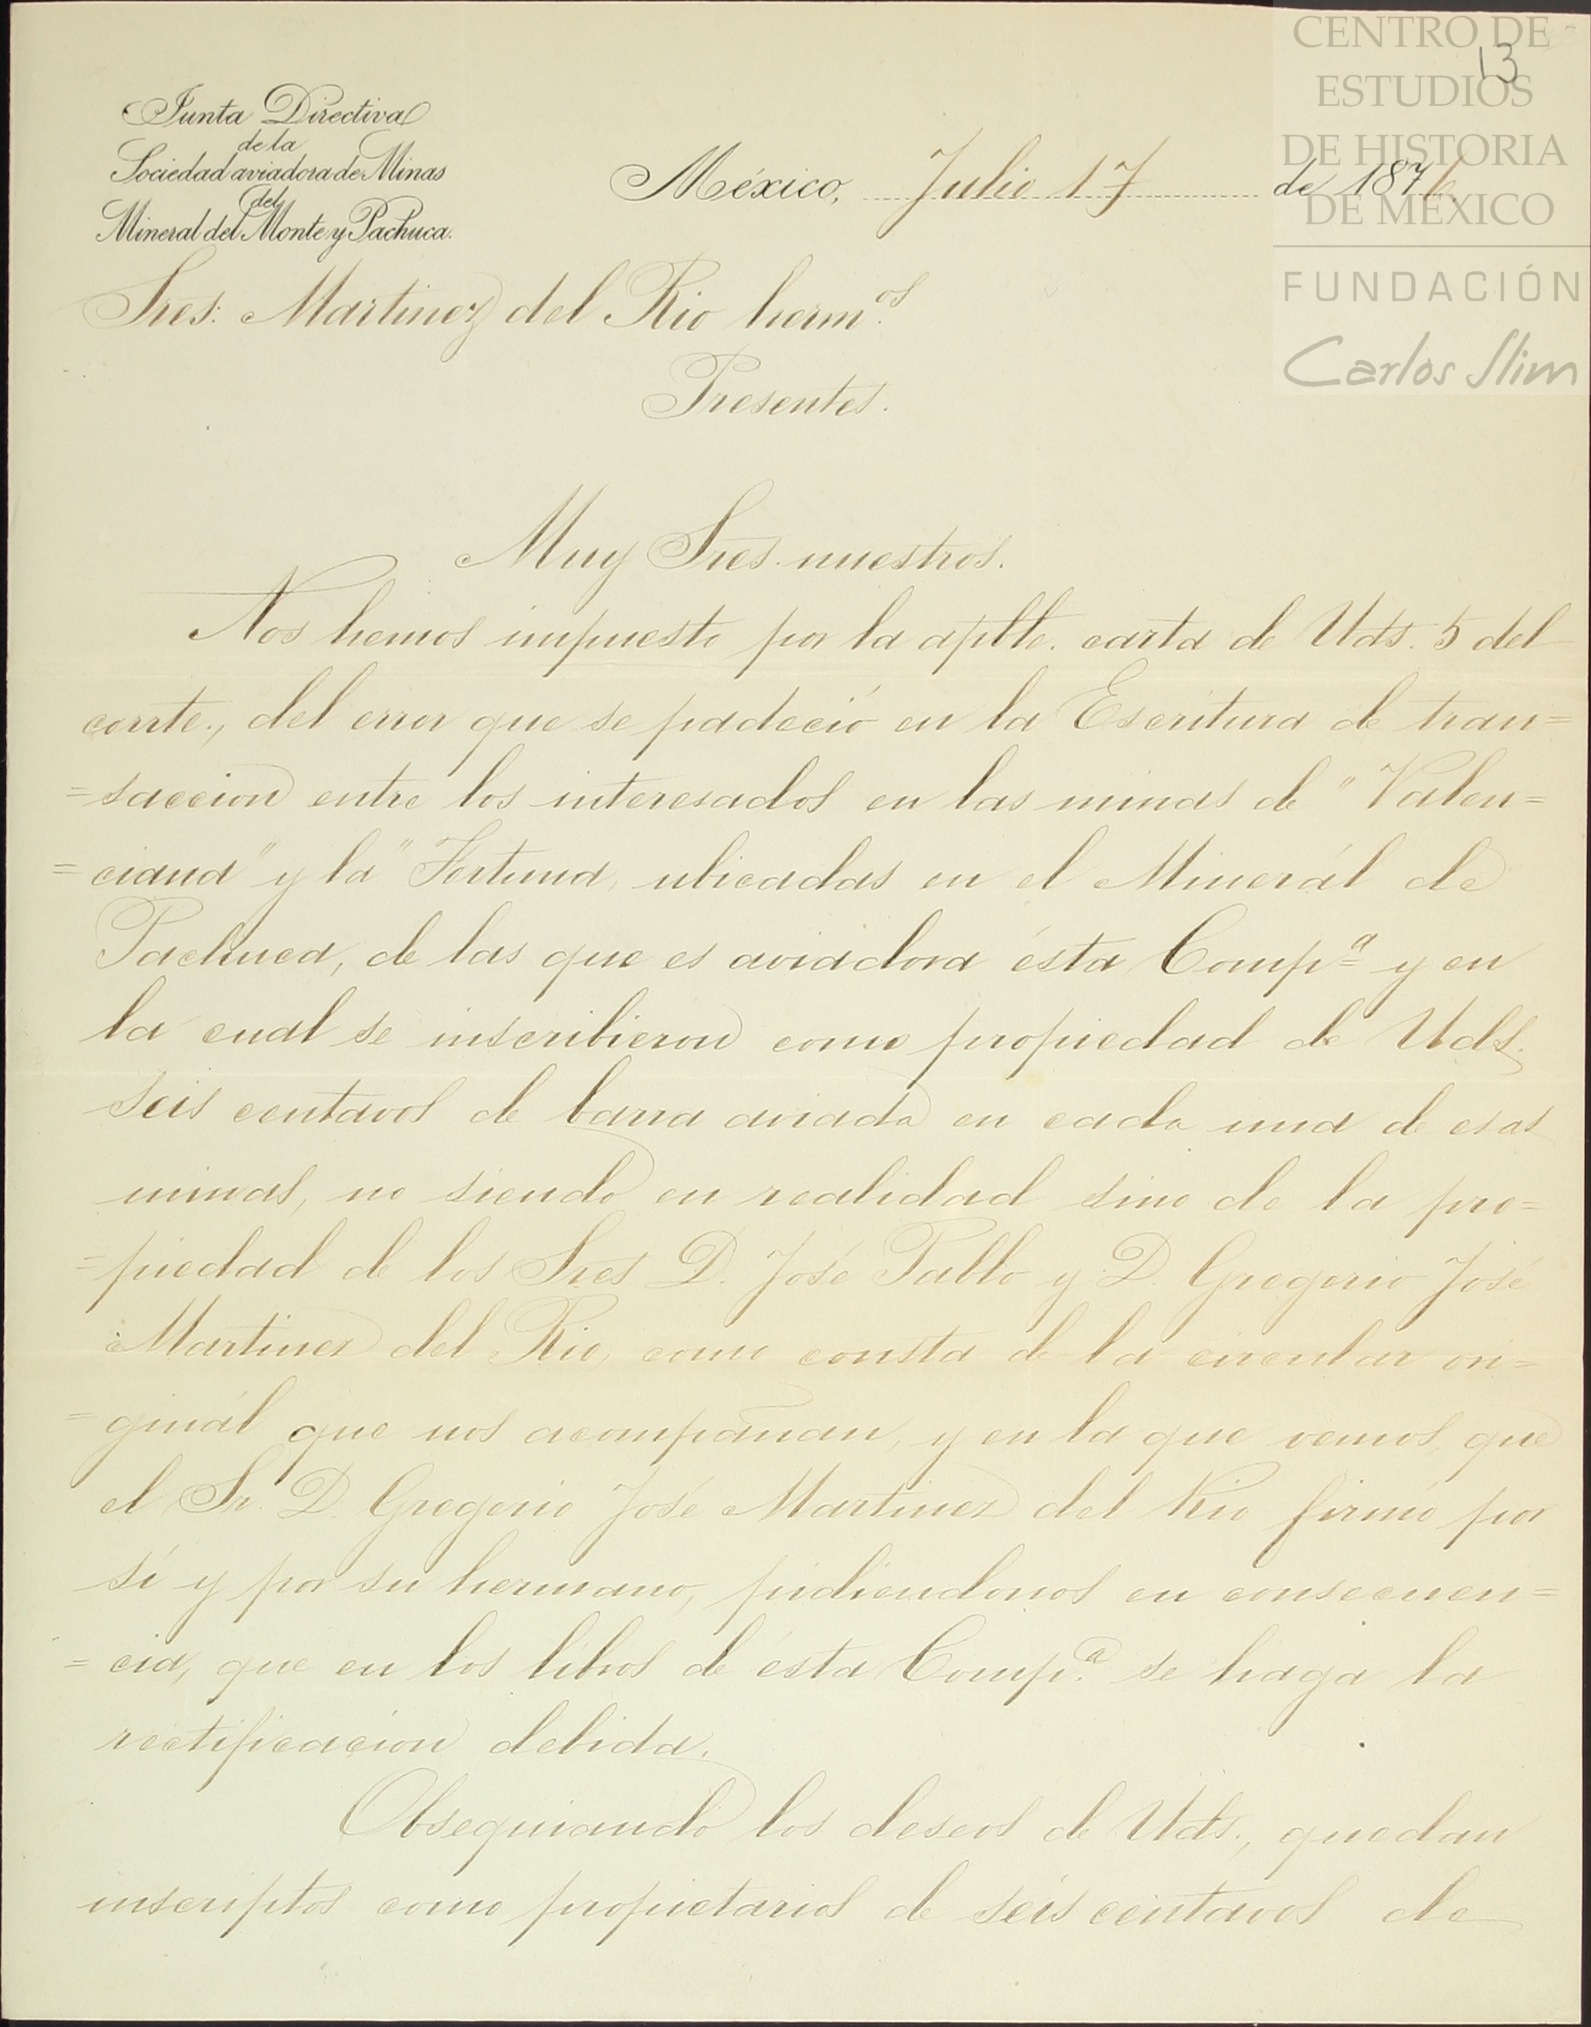 CENTRO DE
ESTUDIOS
DE HISTORIA
DE MÉXICO
FUNDACIÓN
Carlos Slim
13
Junta Directiva
de la
Sociedad aviadora de Minas
del
Mineral del Monte y Pachuca.
México, Julio 17 de 1876
Sres: Martinez del Rio herm.os
Presentes.
Muy Sres. nuestros.
Nos hemos impuesto por la aplte. carta de Uds. 5 del
corrte., del error que se padeció en la Escritura de tran=
=saccion entre los interesados en las minas de "Valen=
=ciana" y la "Fortuna, ubicadas en el Minerál de
Pachuca, de las que es aviadora ésta Comp.a y en
la cual se inscribieron como propiedad de Uds.
seis centavos de barra aviada en cada una de esas
minas, no siendo en realidad sino de la pro=
=piedad de los Sres D. José Pablo y D. Gregorio José
Martinez del Rio, como consta de la circular ori=
=ginál que nos acompañan, y en la que vemos, que
el Sr. D. Gregorio José Martinez del Rio firmó por
sí y por su hermano, pidiendonos en consecuen=
=cia, que en los libros de ésta Comp.a se haga la
rectificacion debida.
Obsequiando los deseos de Uds., quedan
inscriptos como propietarios de seis centavos de